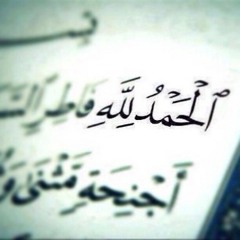 ٱلْحَمْدُ لِلَّهِ فَاطِرِ ٱلسَّ
أَجْنِحَةٍ مَّثْنَىٰ وَ